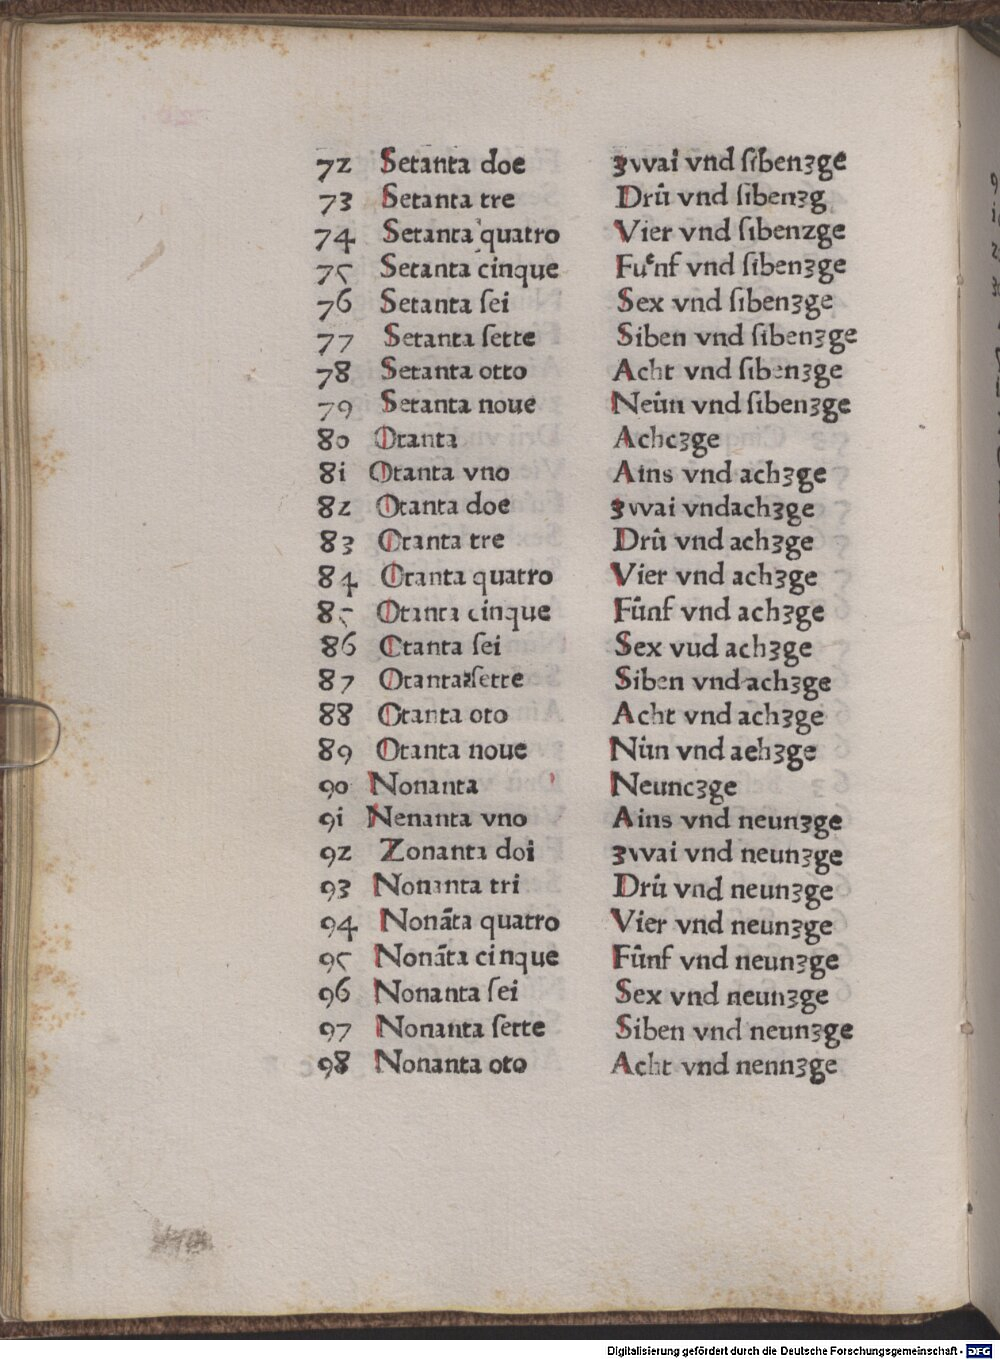 72 Setanta doe ʒvvai vnd ſibenʒge
73 Setanta tre Drů vnd ſibenʒg
74 Setanta quatro Vier vnd ſibenzge
75 Setanta cinque Fuͤnf vnd ſibenʒge
76 Setanta ſei Sex vnd ſibenʒge
77 Setanta ſette Siben vnd ſibenʒge
78 Setanta otto Acht vnd ſibenʒge
79 Setanta noue Neůn vnd ſibenʒge
80 Otanta Achcʒge
8i Otanta vno Ains vnd achʒge
82 Otanta doe ʒvvai vndachʒge
83 Otanta tre Drů vnd achʒge
84 Otanta quatro Vier vnd achʒge
85 Otanta cinque Fůnf vnd achʒge
86 Ctanta ſei Sex vud achʒge
87 Otanta ſette Siben vnd achʒge
88 Otanta oto Acht vnd achʒge
89 Otanta noue Nůn vnd aehʒge
90 Nonanta Neuncʒge
9i Nenanta vno Ains vnd neunʒge
92 Zonanta doi ʒvvai vnd neunʒge
93 Nonanta tri Drů vnd neunʒge
94 Nonāta quatro Vier vnd neunʒge
95 Nonāta cinque Fůnf vnd neunʒge
96 Nonanta ſei Sex vnd neunʒge
97 Nonanta ſette Siben vnd neunʒge
98 Nonanta oto Acht vnd nennʒge
Digitalisierung gefördert durch die Deutsche Forschungsgemeinschaft - DFG